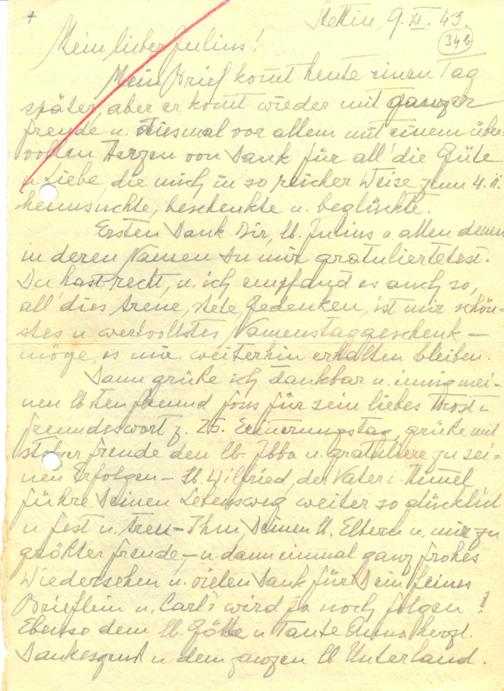 + Stettin 9. XI. 43.
(34b)
Mein lieber Julius!
Mein Brief kommt heute einen Tag
später, aber er komt wieder mit ganzer
Freude u. diesmal vor allem mit einem über-
vollen Herzen von Dank für all' die Güte
u. Liebe, die mich in so reicher Weise zum 4. XI
heimsuchte, beschenkte u. beglückte.
Ersten Dank Dir, lb. Julius u. allen denen
in deren Namen Du mir gratuliertest.
Du hast recht, u. ich empfand es auch so,
all' dies treue, stete Gedenken, ist mir schön-
stes u. wertvollstes Namenstaggeschenk –
möge es mir weiterhin erhalten bleiben.
Dann grüße ich dankbar u. innig mei-
nen lbsten Freund für sein liebes Trost u
Freundeswort z. 25. Erinerungstag, grüße mit
stolzer Freude den lb. u. gratuliere zu sei-
nen Erfolgen – lb. Wilfried, der Vater i. Himel
führe Deinen Lebensweg weiter so glücklich
u. fest u. treu – Ihm, Deinen lb. Eltern u. mir zu
größter Freude, – u. dann einmal ganz frohes
Wiedersehen u. vielen Dank für Dein feines
Brieflein u. Carl's wird ja noch folgen!
Ebenso dem lb. u. Tante Anna herzl.
Dankesgruß u. dem ganzen lb Unterland.